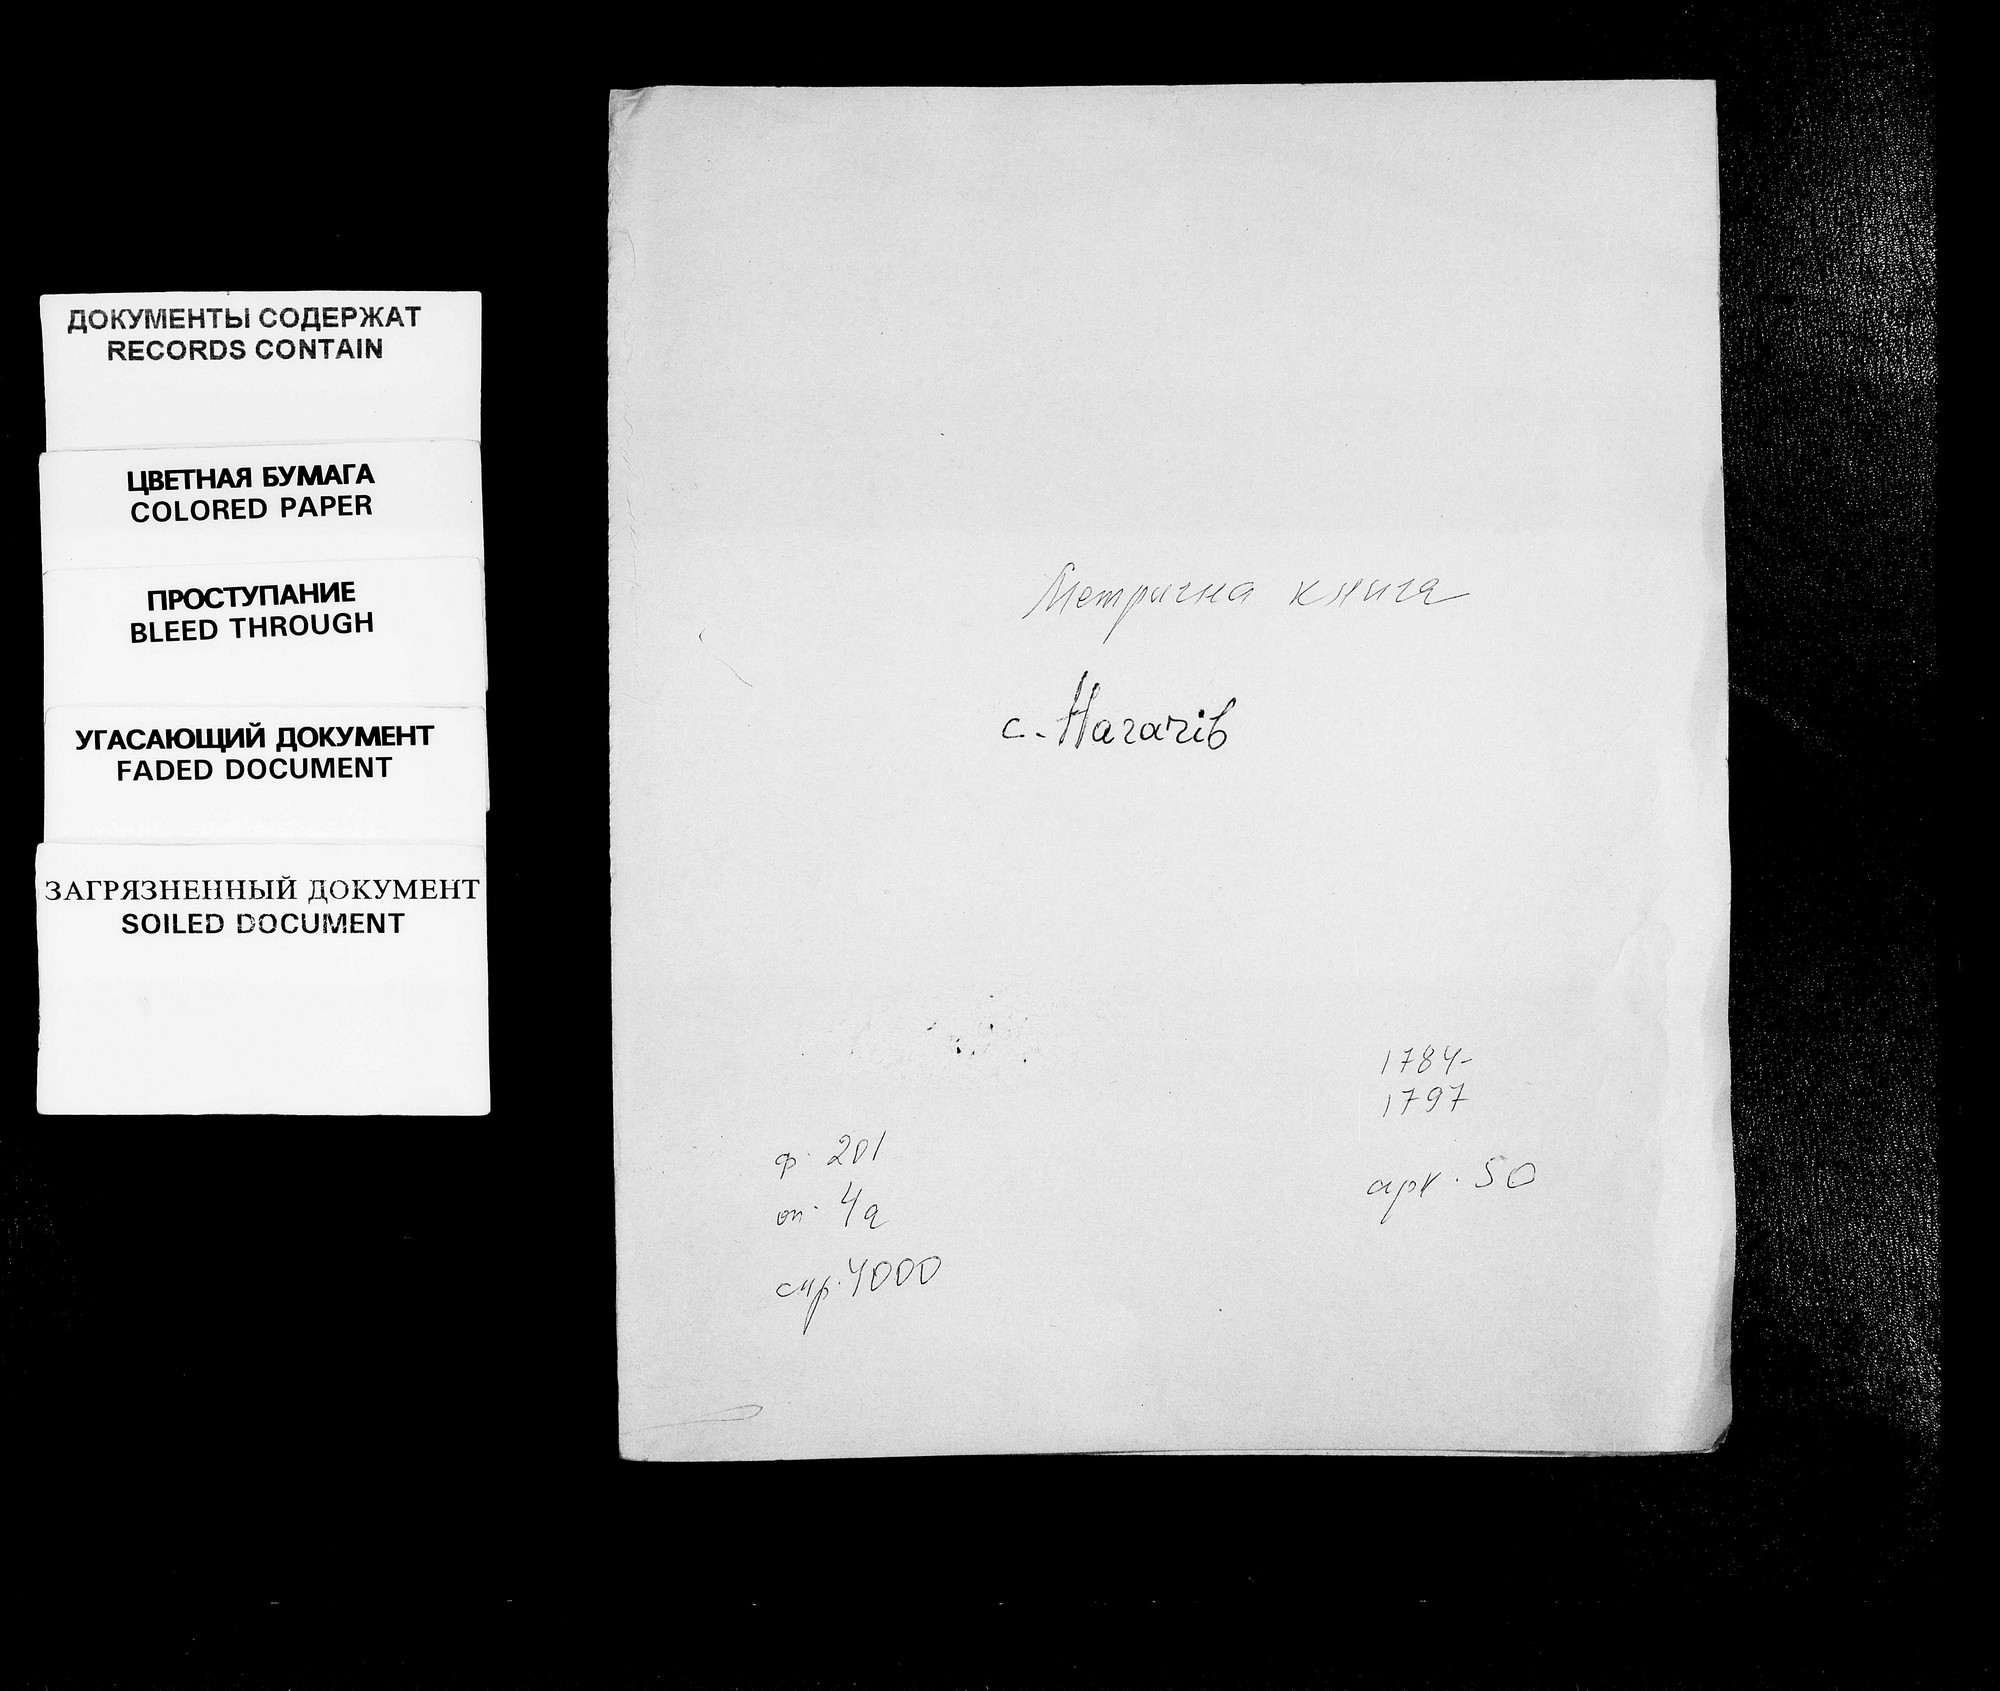 ДОКУМЕНТЫ СОДЕРЖАТ
RECORDS CONTAIN
ЦВЕТНАЯ БУМАГА
COLORED PAPER
ПРОСТУПАНИЕ
BLEED THROUGH
УГАСАЮЩИЙ ДОКУМЕНТ
FADED DOCUMENT
ЗАГРЯЗНЕННЫЙ ДОКУМЕНТ
SOILED DOCUMENT
Метрична книга
с. Нагачів
1784-
1797
ф. 201
оп. 4а
спр. 4000
арк. 50